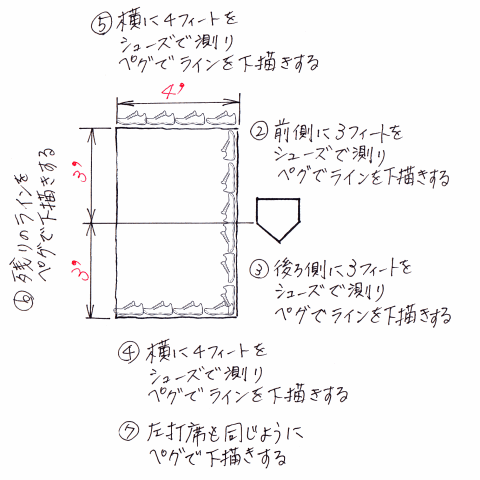 ⑤ 横に4フィートを
シューズで測り
ペグでラインを下描きする
4'
② 前側に3フィートを
シューズで測り
ペグでラインを下描きする
3'
3'
⑥ 残りのラインを
ペグで下描きする
③ 後ろ側に3フィートを
シューズで測り
ペグでラインを下描きする
④ 横に4フィートを
シューズで測り
ペグでラインを下描きする
⑦ 左打席も同じように
ペグで下描きする